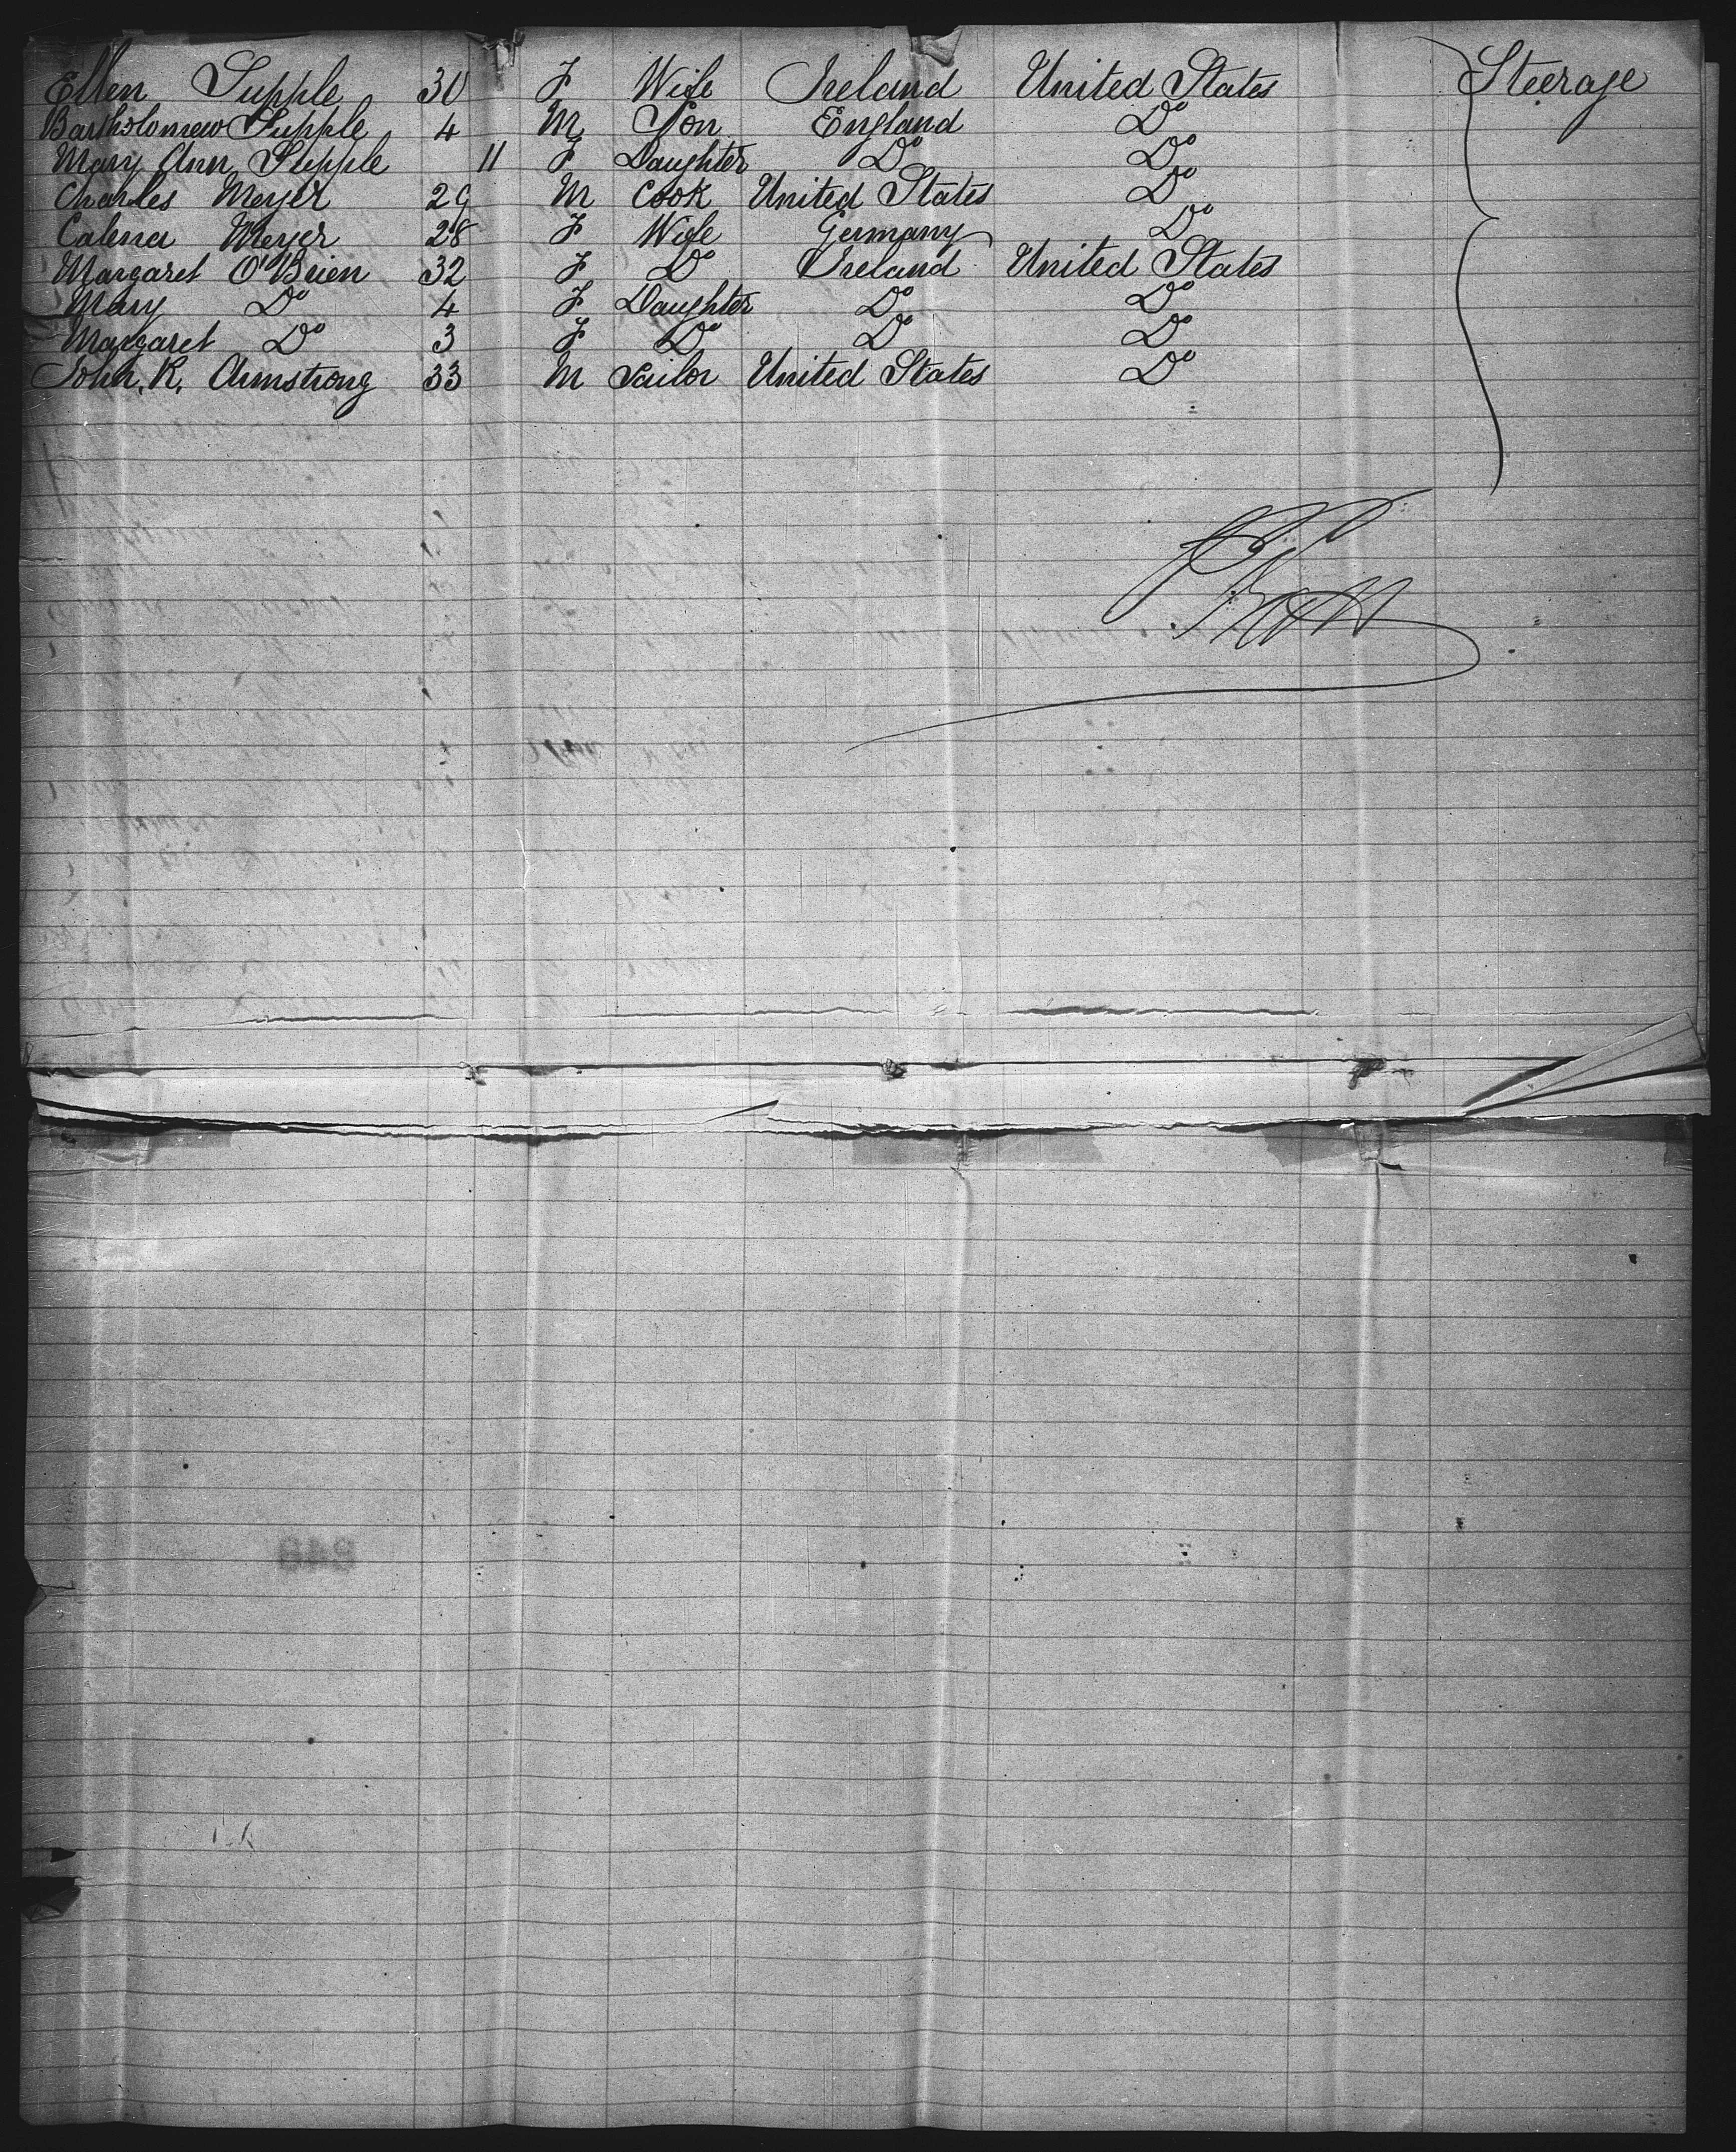 Ellen Supple 30 F Wife Ireland United States Steerage
Bartholomew Supple 4 M Son England Do
Mary Ann Supple 11 F Daughter Do Do
Charles Meyer 29 M Cook United States Do
Calena Meyer 28 F Wife Germany Do
Margaret O'Brien 32 F Do Ireland United States
Mary Do 4 F Daughter Do Do
Margaret Do 3 F Do Do Do
John. R. Armstrong 33 M Sailor United States Do